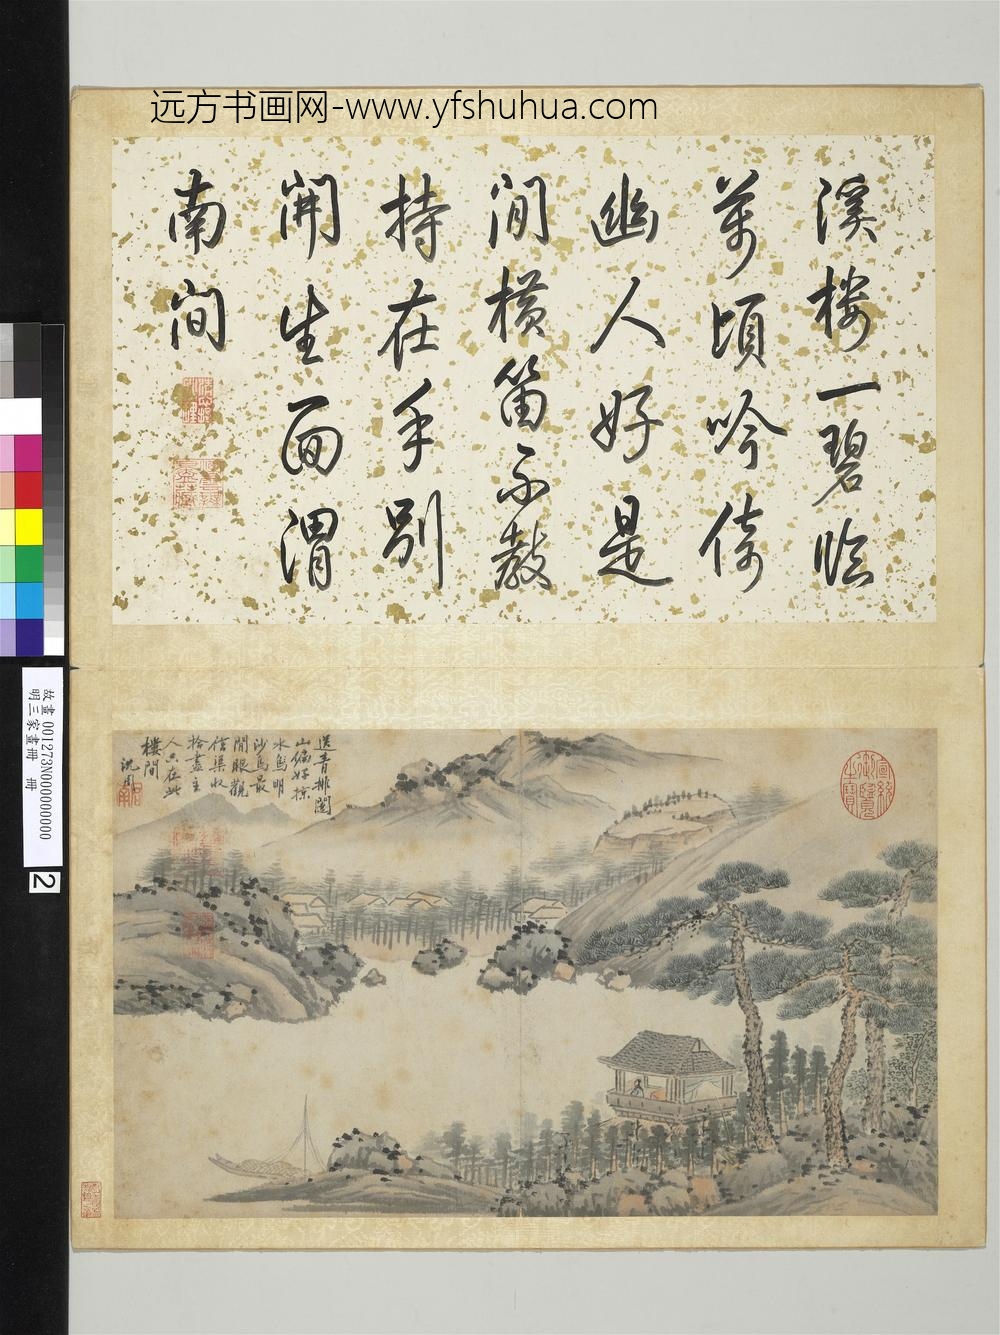 远方书画网-www.yfshuhua.com
溪楼一碧临
万頃吟倚
幽人好是
閒橫笛不教
持在手別
開生面渭
南間
送青排闥
山偏好掠
水鳥明
沙鳥最
閒眼觀
信渠收
拾盡主
人只在此
樓間
沈周
宣統御覽之寶
故畫 001273N000000000
明三家畫冊 冊
2